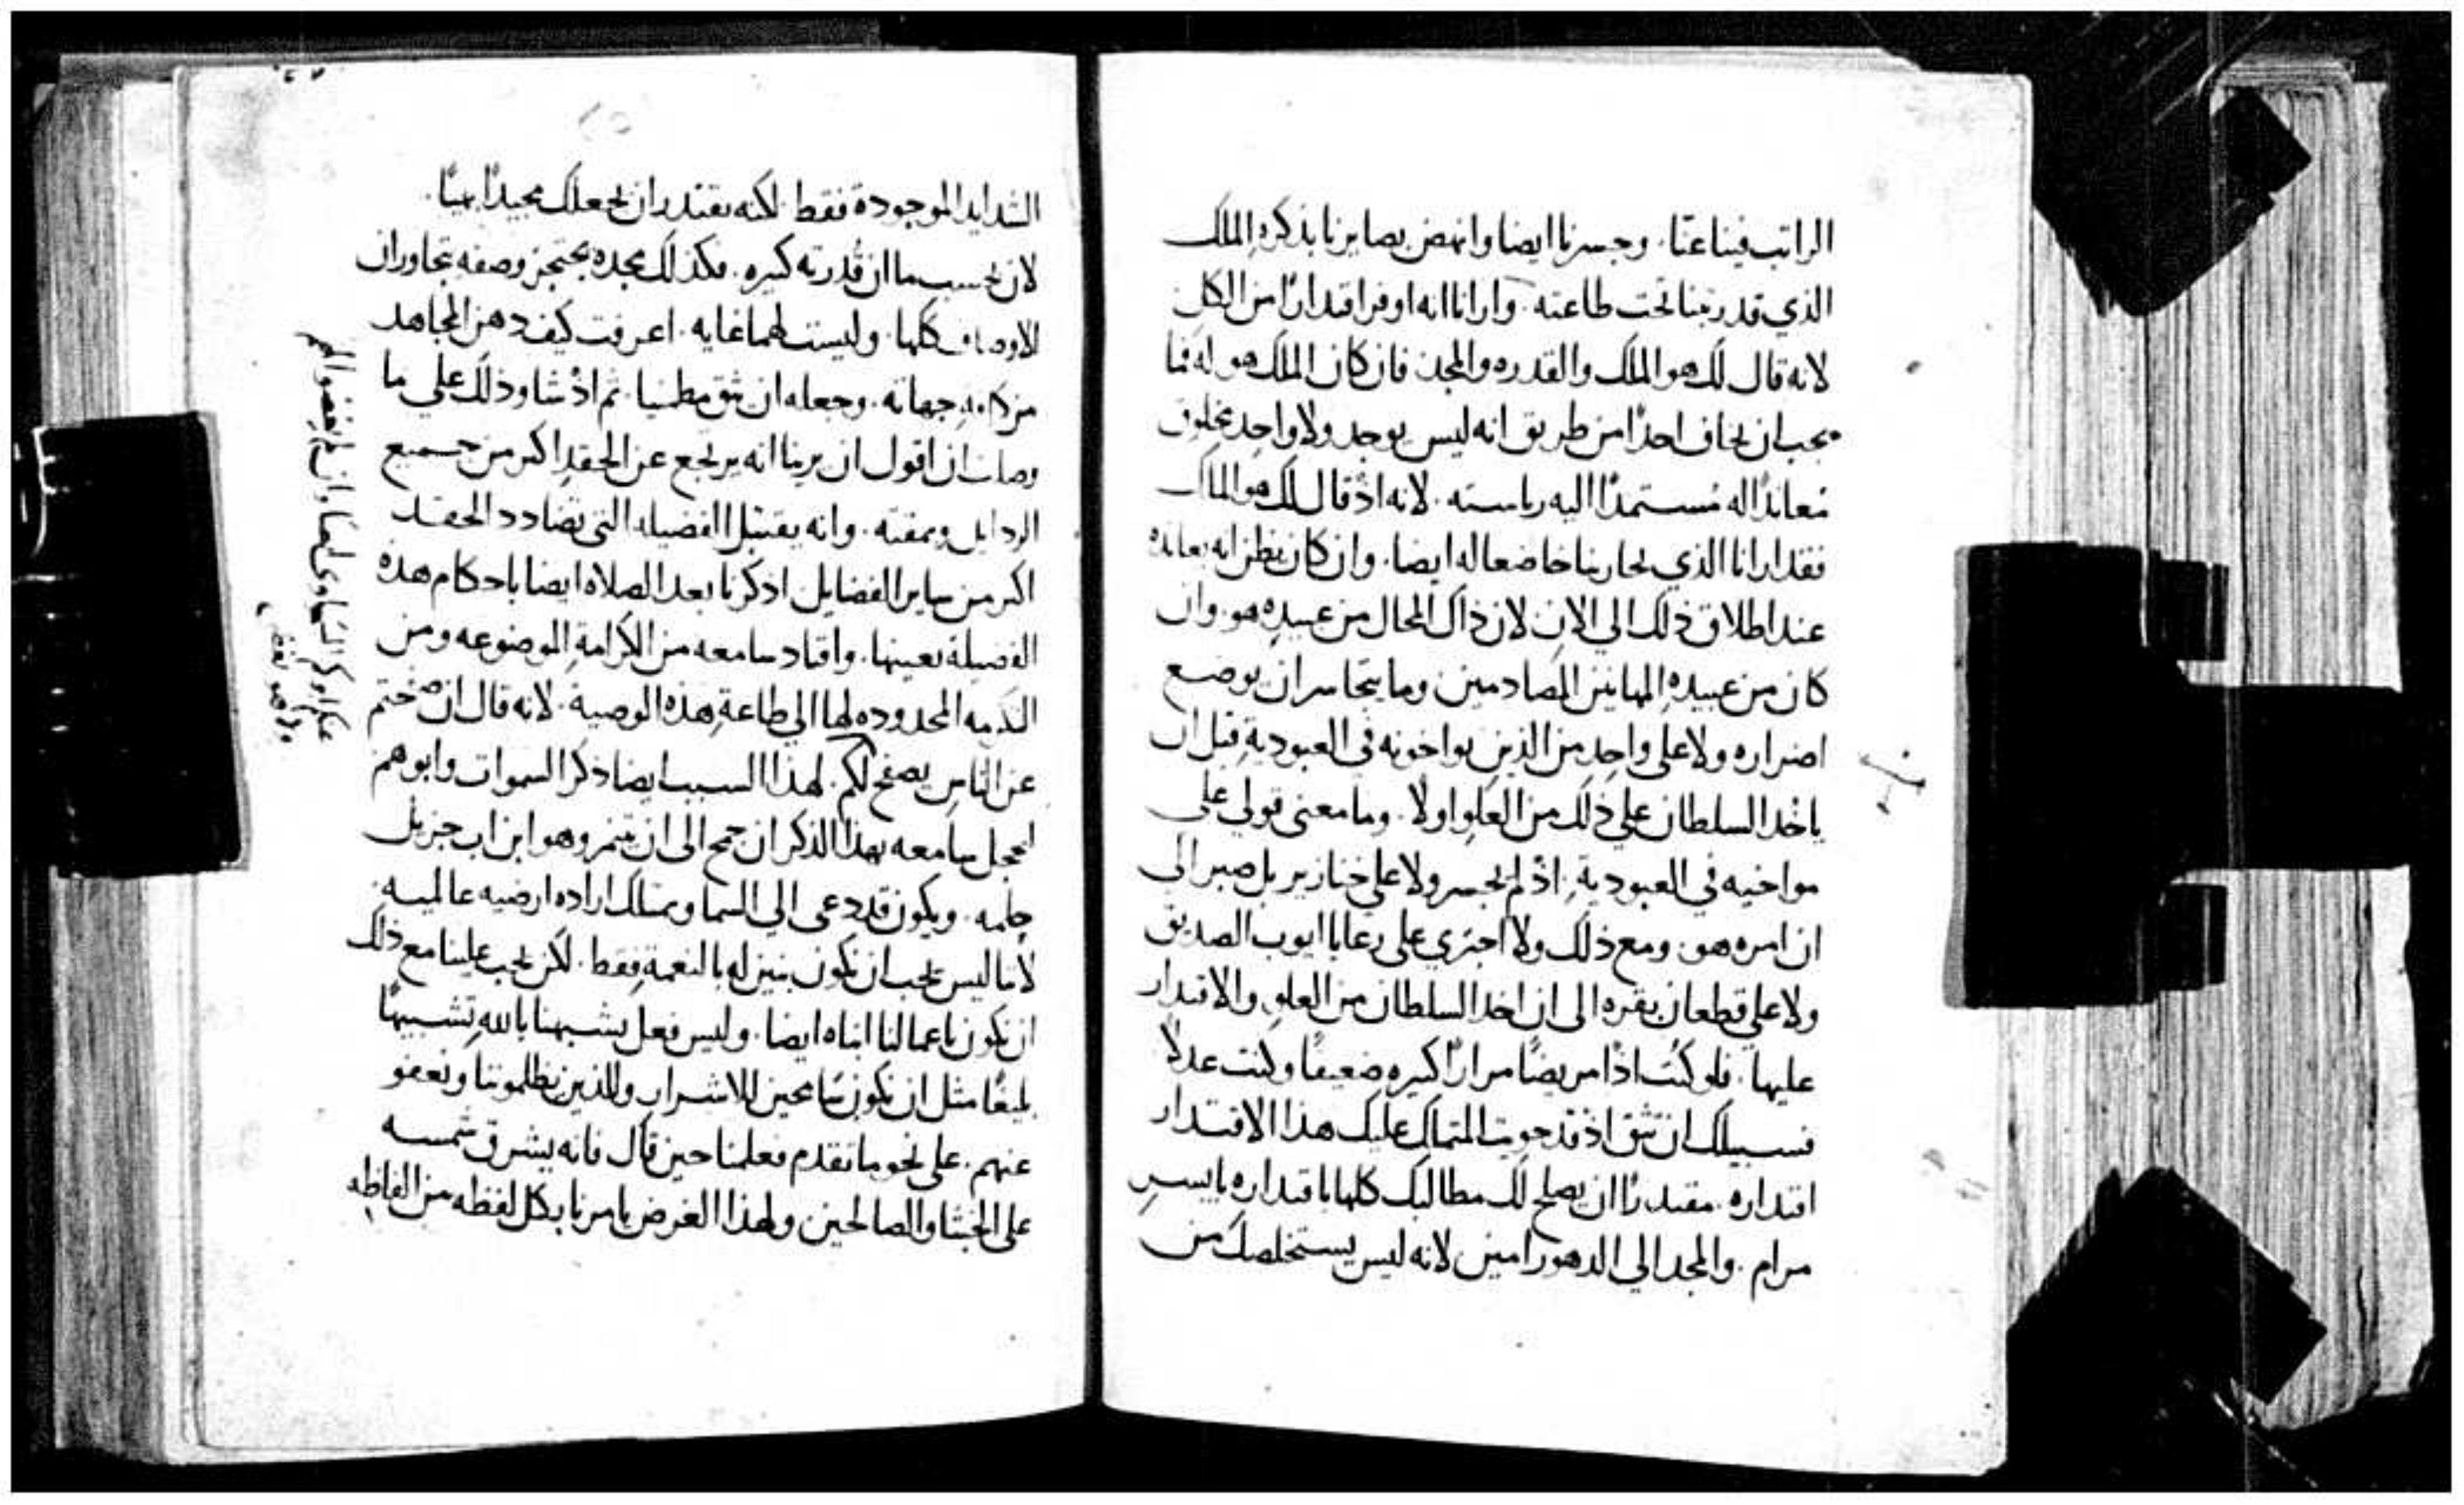 الراتب فينا عنا. وجسرنا ايضا وانهض بصايرنا بذكره الملك
الذي قد رتبنا تحت طاعته. وارانا انه اوفر اقتدارًا من الكل
لانه قال لك هو الملك والقدره والمجد فان كان الملك هو له فما
يجب ان نخاف احدًا من طريق انه ليس يوجد ولا واحد مخلوق
معاندًا له مستمدًا اليه رياسته. لانه اذ قال لك هو الملك
فقد ارانا الذي يحاربنا خاضعا له ايضا. وان كان يظن انه يعانده
عند اطلاق ذلك الي الان لان ذاك المحال من عبيده هو. وان
كان من عبيده المهانين المصادمين وما يتجاسر ان يوضع
اضراره ولا على واحد من الذين يواخونه في العبودية قبل ان
ياخد السلطان علي ذلك من العلو اولًا. وما معنى قولي على
مواخيه في العبودية. اذ لم يجسر ولا علي خنازير بل صبر الى
ان امره هو. ومع ذلك ولا اجتري على رعايا ايوب الصديق
ولا على قطعان بقره الى ان اخد السلطان من العلو والاقتدار
عليها. فلو كنت اذًا مريضًا مرارًا كثيره ضعيفًا وكنت عدلًا
فسبيلك ان تثق اذ قد حويت المتملك عليك هذا الاقتدار
اقتداره. مقتدرًا ان يصلح لك مطالبك كلها باقتداره بايسر
مرام. والمجد الي الدهور امين لانه ليس يستخلصك من
الشدايد الموجودة فقط. لكنه يقتدر ان يجعلك مجيدًا بهيًا.
لان بحسب ما ان قدرته كثيره. فكذلك مجده يحتجز وصفه تجاوران
الاوصاف كلها. وليست لهما غايه. اعرفت كيف دهن المجاهد
من كافه جهاته. وجعله ان يثق مطمنيا. ثم اذ شا وذلك علي ما
وصلت ان اقول ان يرينا انه يرتجع عن الحقد اكثر من جميع
الردايل ويمقته. وانه يقتبل الفضيله التي تضادد الحقد
اكثر من ساير الفضايل اذكرنا بعد الصلاه ايضا باحكام هذه
الفضيلة بعينها. واقتاد سامعه من الكرامة الموضوعه ومن
المحدوده لها الي طاعة هذه الوصية. لانه قال ان صفحتم
عن الناس يصفح لكم. لهذا السبب ايضا ذكر السموات وابوهم
ليخجل سامعه بهذا الذكر ان جمح الى ان يتنمر وهو ابن اب جزيل
حلمه. ويكون قد دعى الي السما ويمتلك اراده ارضيه عالميه
لاننا ليس يجب ان نكون بنين له بالنعمة فقط. لكن يجب علينا مع ذلك
ان نكون باعمالنا ابناه ايضا. وليس فعل يشبهنا بالله تشبيهًا
بليغًا مثل ان نكون سامحين للاشرار وللذين يظلموننا ونعفو
عنهم. على نحو ما تقدم فعلمنا حين قال فانه يشرق شمسه
على الخبثا والصالحين ولهذا الغرض يامرنا بكل لفظه من الفاظه